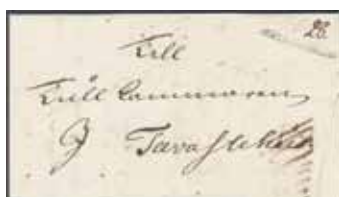 28.
Till
Tull Cammaren
I Tavastehus